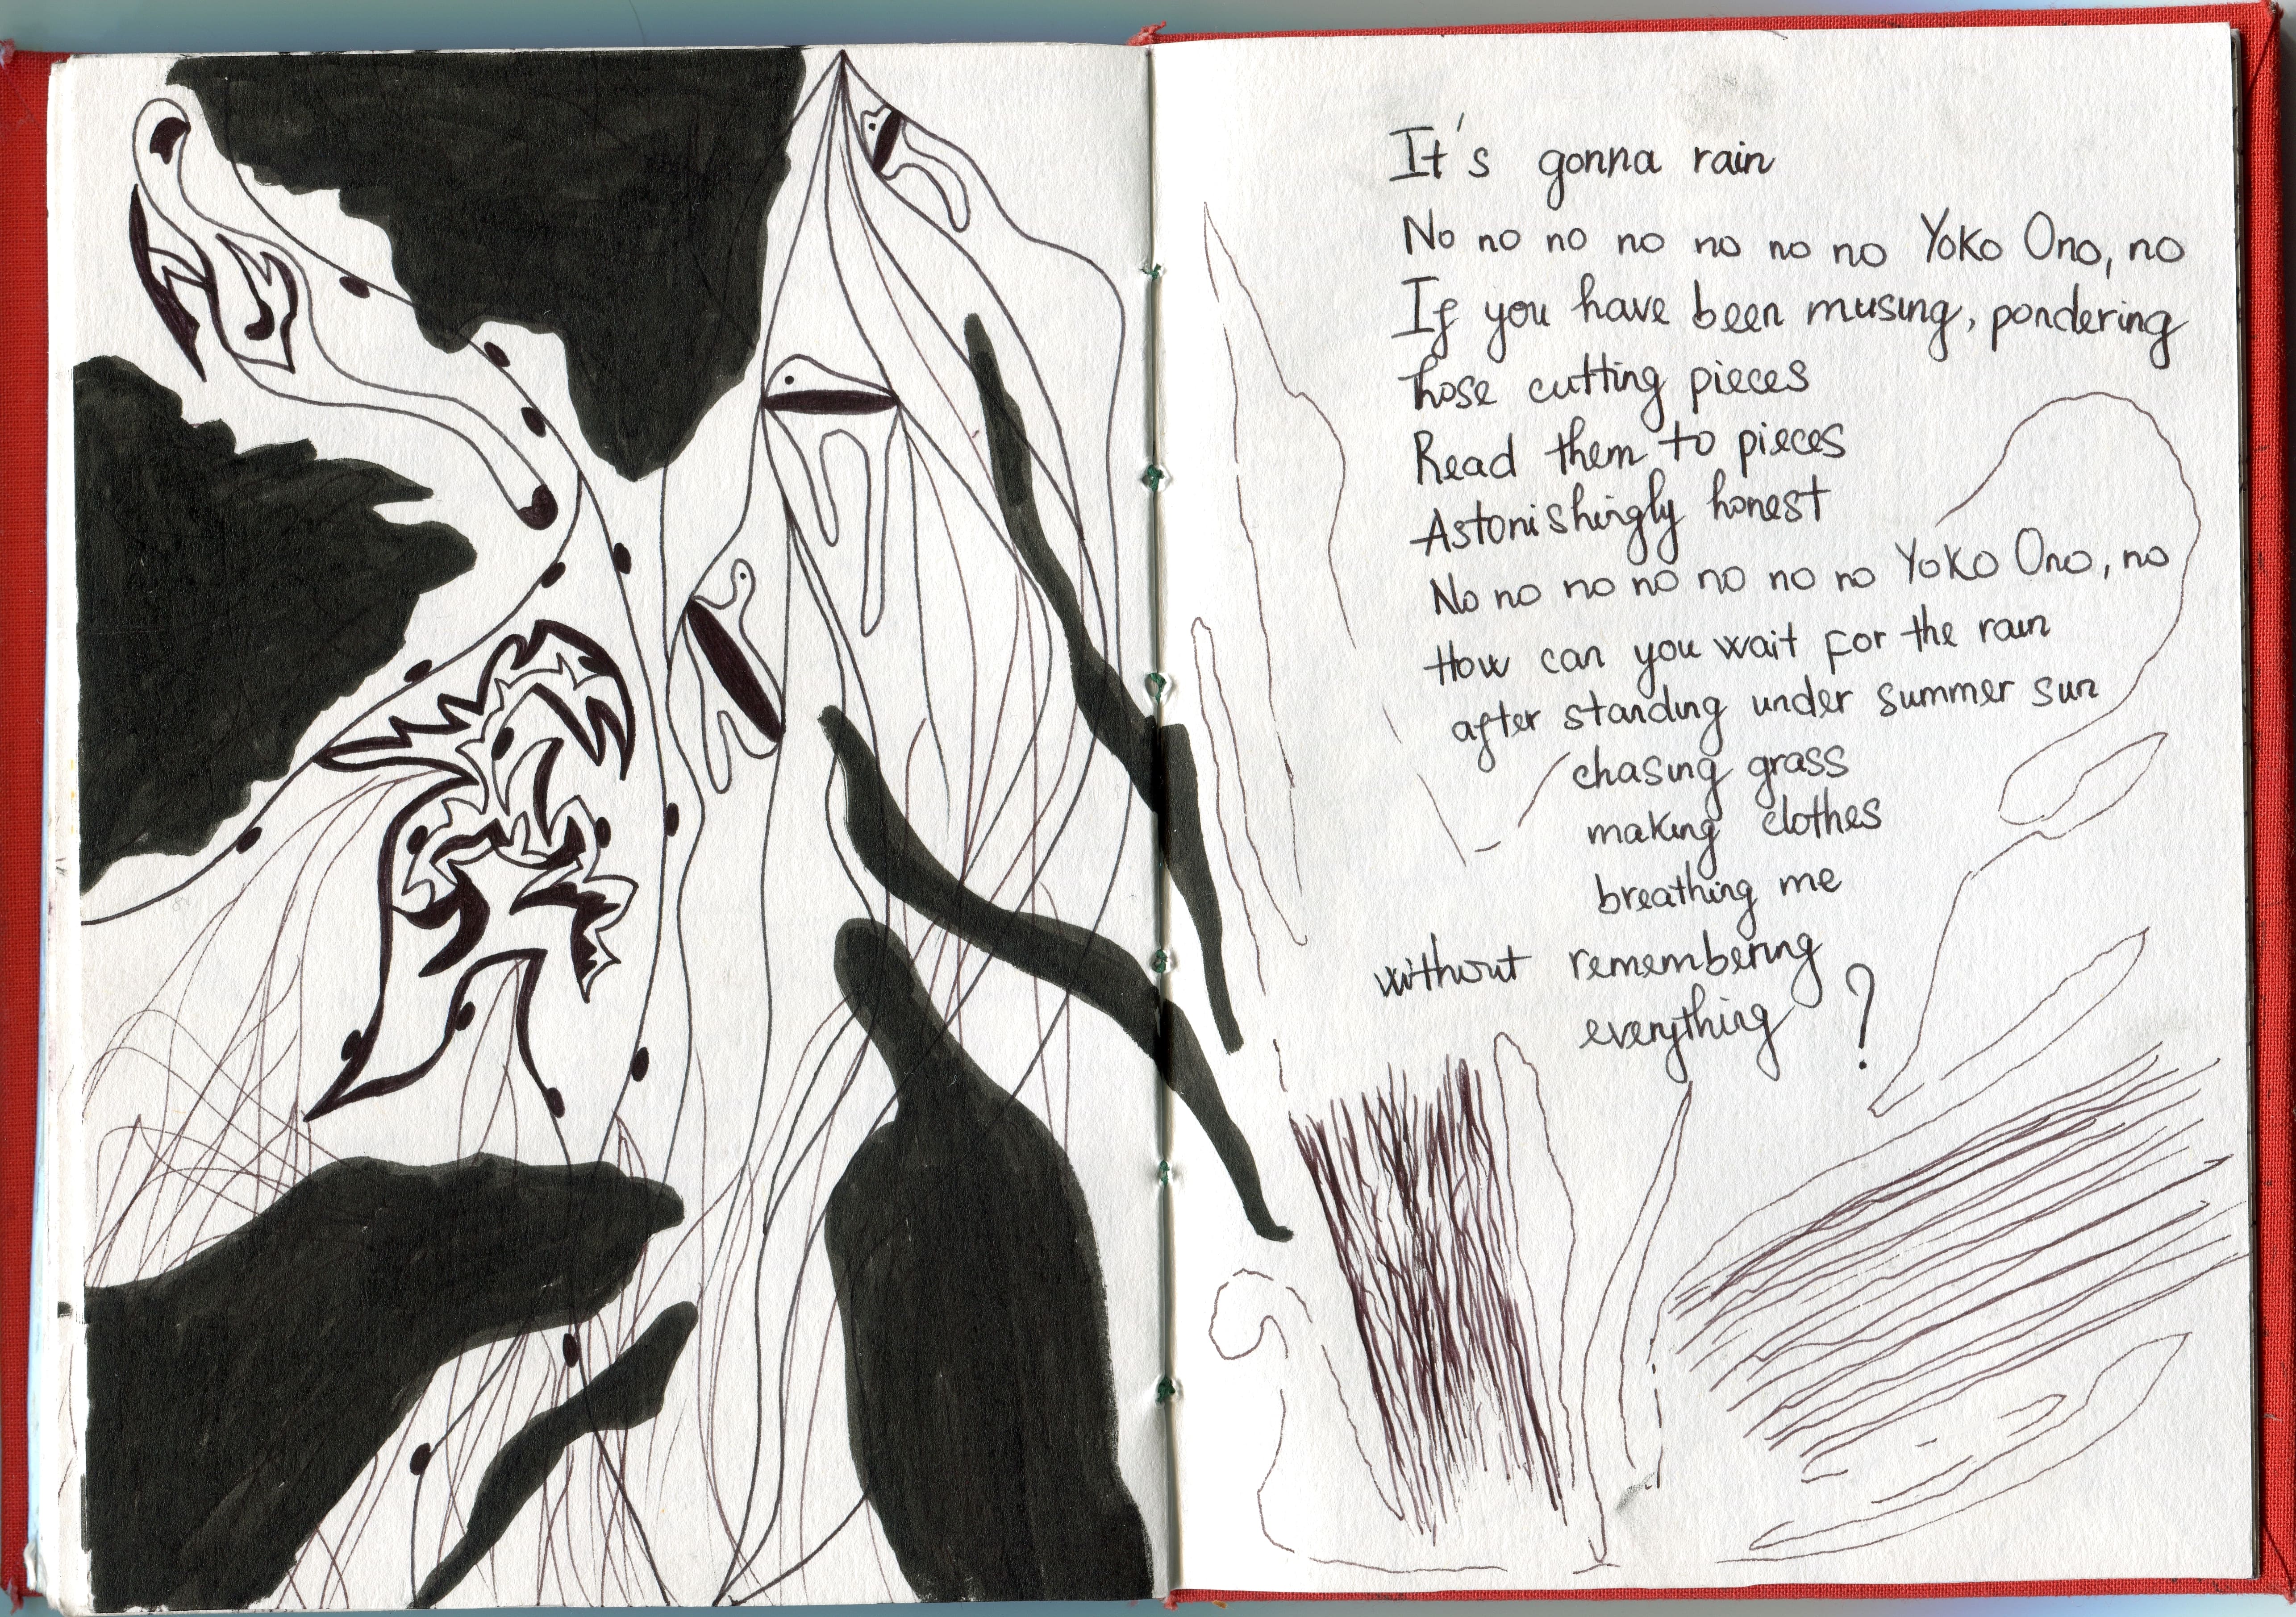 It's gonna rain
No no no no no no no Yoko Ono, no
If you have been musing, pondering
hose cutting pieces
Read them to pieces
Astonishingly honest
No no no no no no no Yoko Ono, no
How can you wait for the rain
after standing under summer sun
chasing grass
making clothes
breathing me
without remembering
everything ?